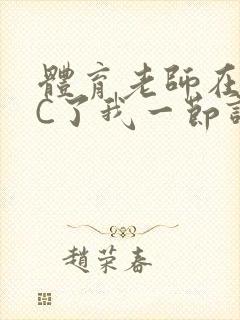 體育老師在
C了我一節
趙荣春